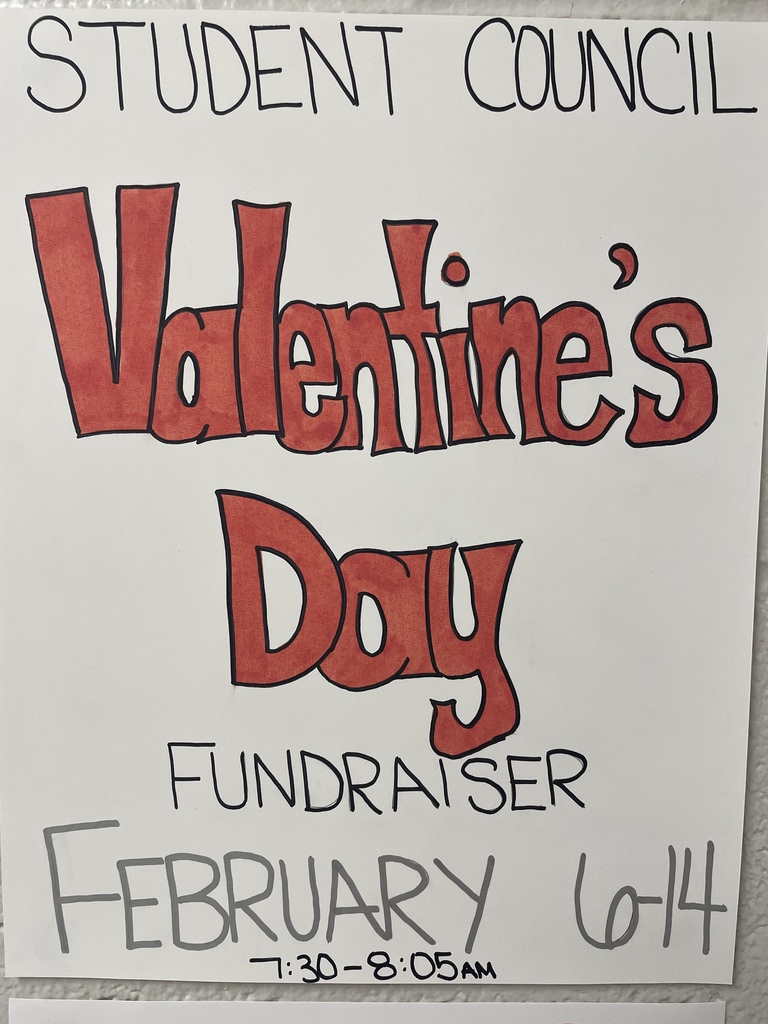 STUDENT COUNCIL
Valentine's
Day
FUNDRAISER
FEBRUARY 6-14
7:30-8:05AM